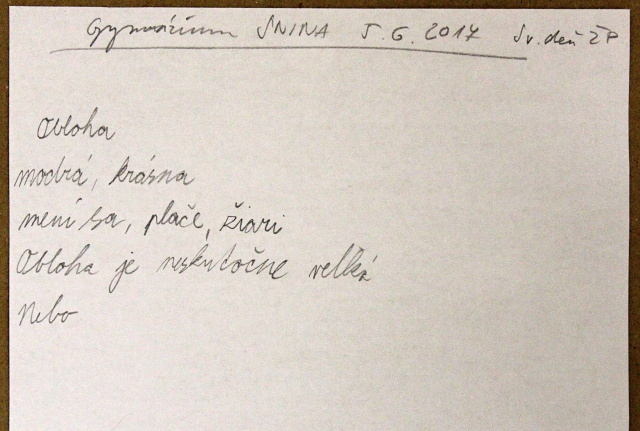 Gymnázium SNINA 5.6.2017 Sv. deň ŽP
Obloha
modrá, krásna
mení sa, plače, žiari
Obloha je neskutočne veľká
Nebo